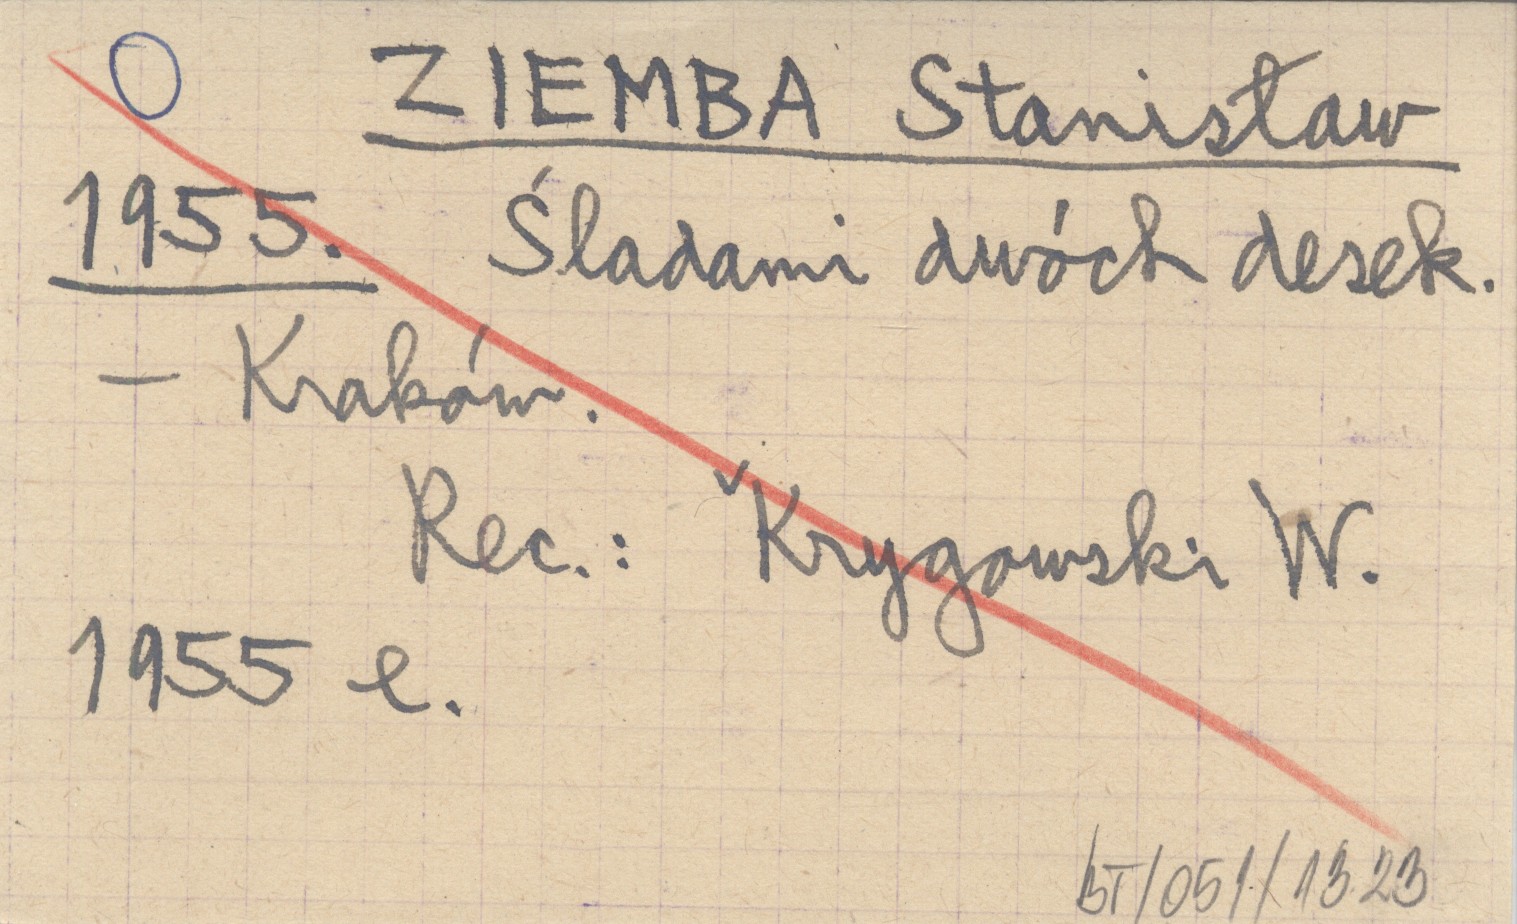 O ZIEMBA Stanisław
1955. Śladami dwóch desek.
– Kraków.
Rec.: ˇKrygowski W.
1955 e.
BT/051/1323